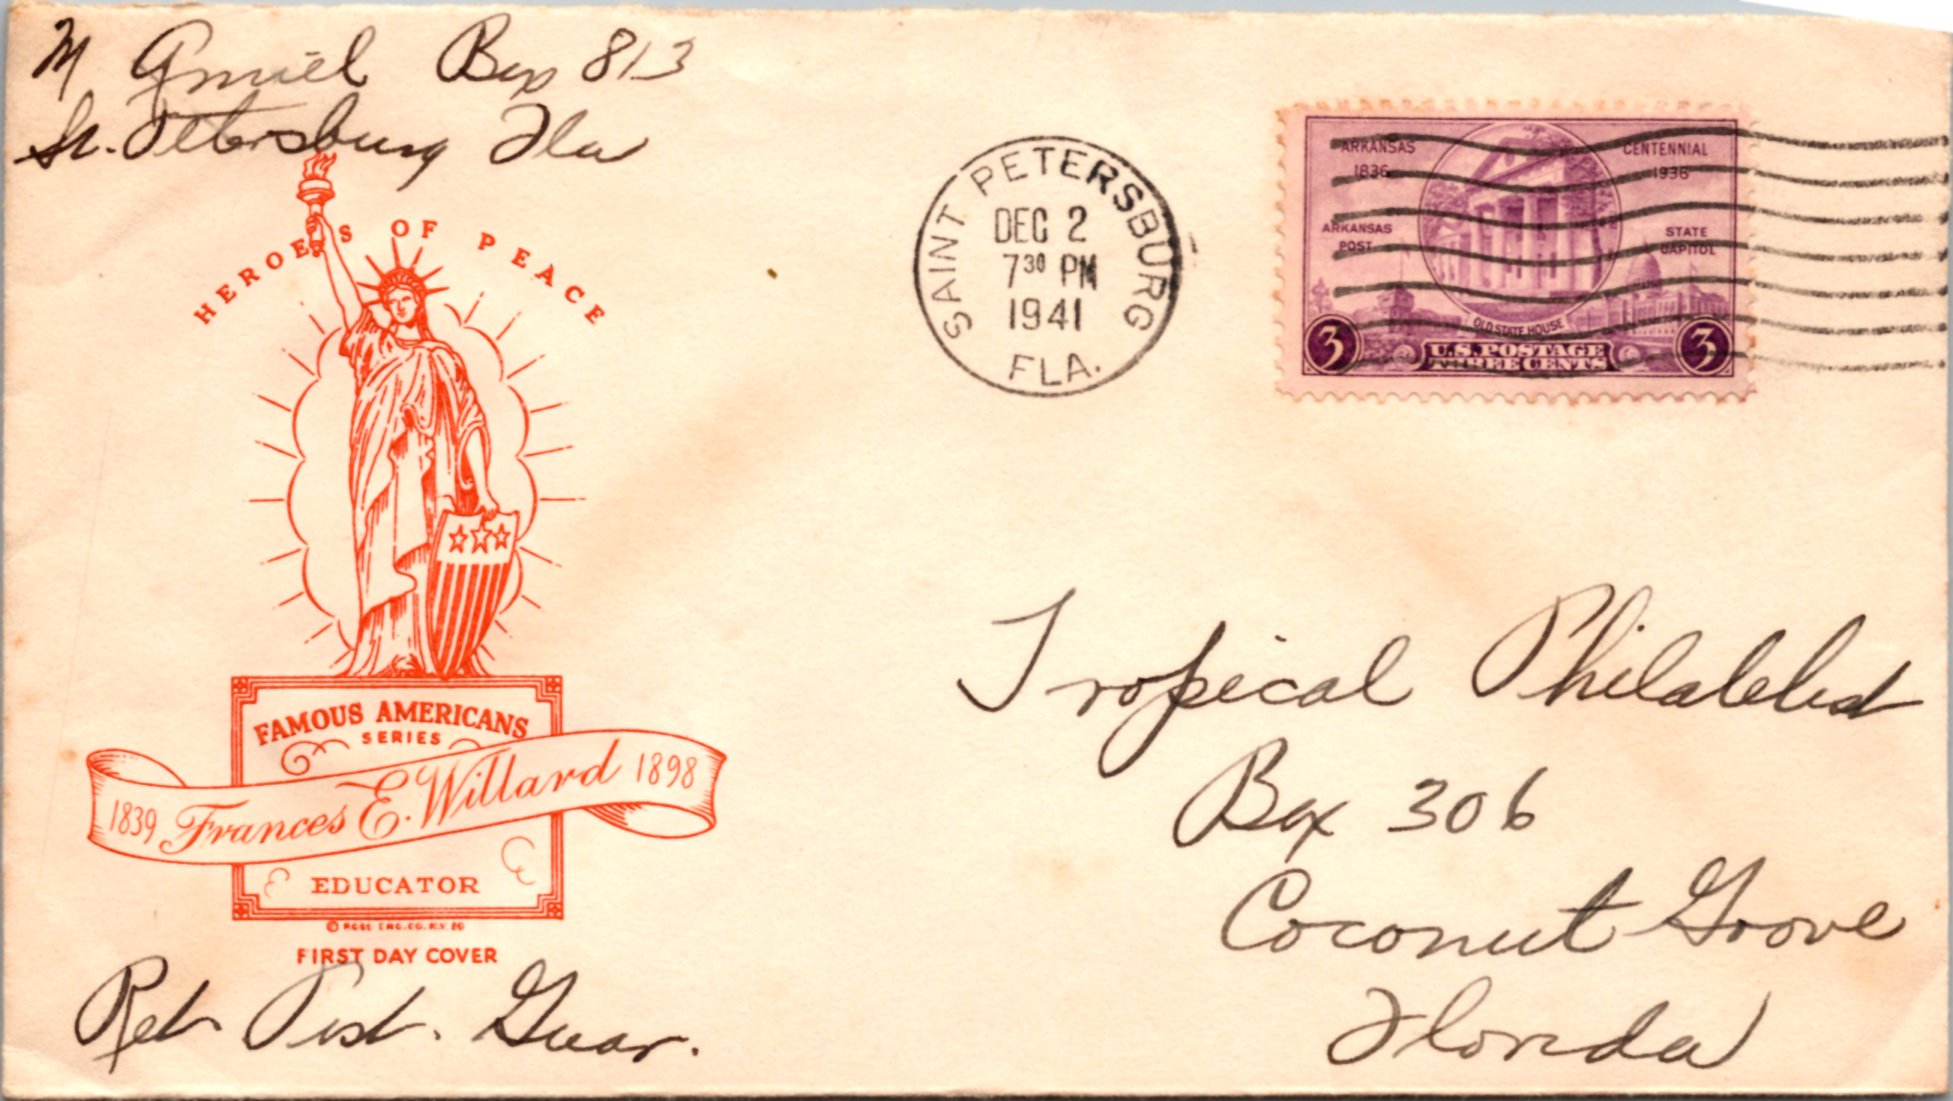 M Gmiel Box 813
St. Petersburg Fla
HEROES OF PEACE
SAINT PETERSBURG
DEC 2
7³⁰ PM
1941
FLA.
ARKANSAS
1836
CENTENNIAL
1936
ARKANSAS
POST
STATE
CAPITOL
OLD STATE HOUSE
3
U.S. POSTAGE
THREE CENTS
3
Tropical Philatelist
Box 306
Coconut Grove
Florida
FAMOUS AMERICANS
SERIES
1839 Frances E. Willard 1898
EDUCATOR
FIRST DAY COVER
Ret. Post. Guar.